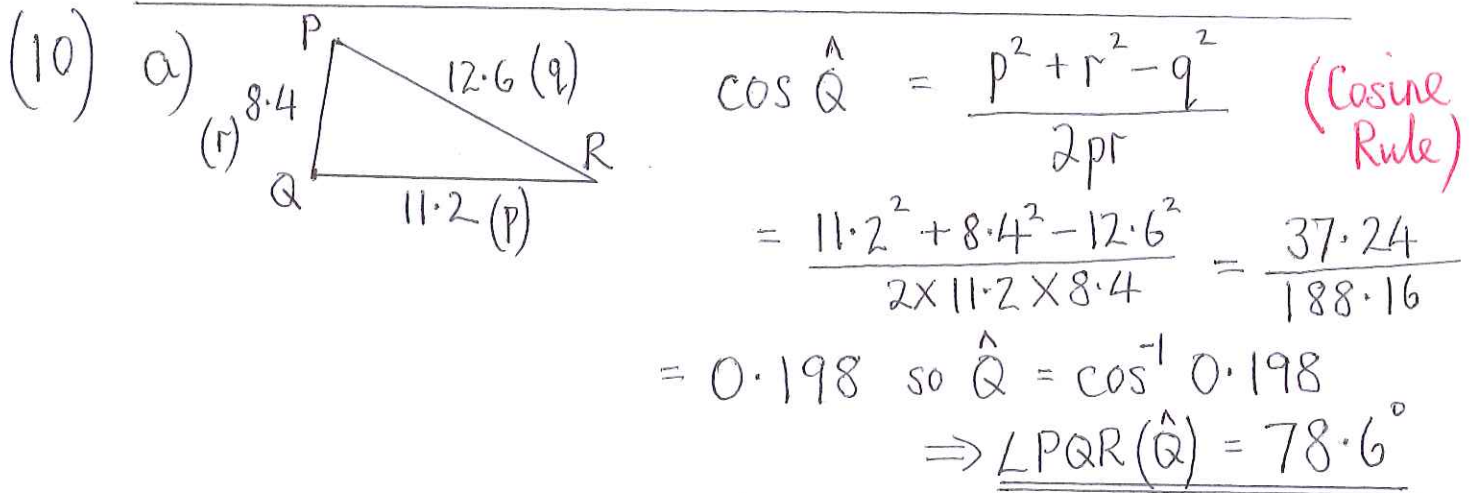 (10) a) P
8.4 12.6 (q)
(r)
Q R
11.2 (p)
cos Q̂ = p² + r² - q² / 2pr (Cosine Rule)
= 11.2² + 8.4² - 12.6² / 2 × 11.2 × 8.4 = 37.24 / 188.16
= 0.198 so Q̂ = cos⁻¹ 0.198
⇒ ∠PQR (Q̂) = 78.6°